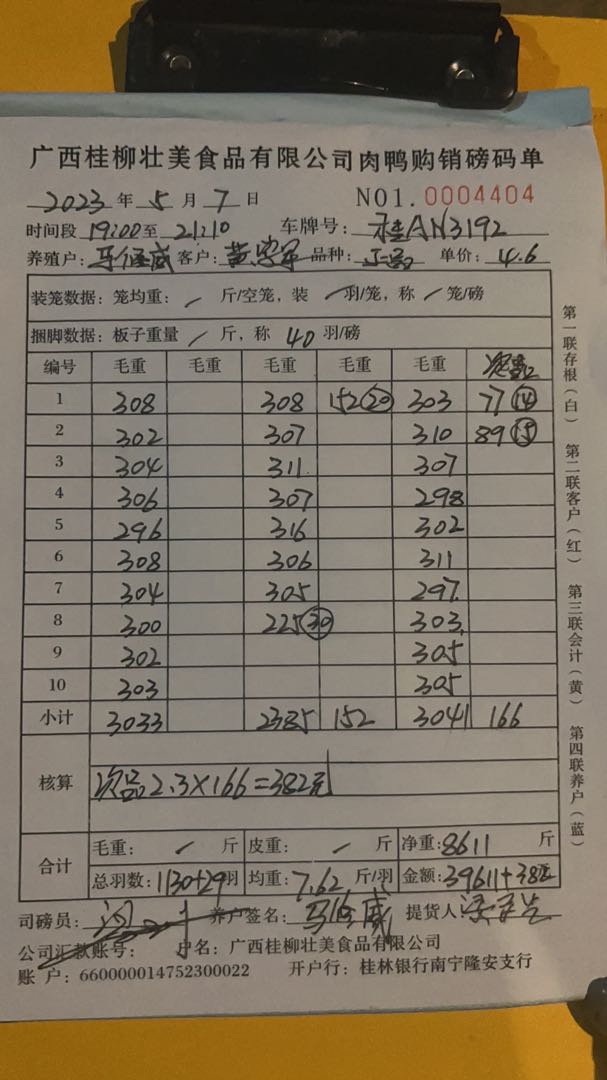 广西桂柳壮美食品有限公司肉鸭购销磅码单
2023 年 5 月 7 日 NO1. 0004404
时间段 19:00 至 21:10 车牌号: 桂AN3192
养殖户: 马 威 客户: 黄 军 品种: 单价: 4.6
装笼数据: 笼均重: / 斤/空笼, 装 / 羽/笼, 称 / 笼/磅
捆脚数据: 板子重量 / 斤, 称 40 羽/磅
编号 毛重 毛重 毛重 毛重 毛重
1 308 308 152 ⑳ 303 77 ⑭
2 302 307 310 89 ⑮
3 304 311 307
4 306 307 298
5 296 316 302
6 308 306 311
7 304 305 297
8 300 225 ㉚ 303
9 302 305
10 303 305
小计 3033 2385 152 3041 166
核算 次品2.3×166=382元
合计 毛重: / 斤 皮重: / 斤 净重: 8611 斤
总羽数: 1130+29羽 均重: 7.62 斤/羽 金额: 39611+382
司磅员: 养户签名: 马 威 提货人
公司汇款账号: 户名: 广西桂柳壮美食品有限公司
账 户: 660000014752300022 开户行: 桂林银行南宁隆安支行
第一联存根(白) 第二联客户(红) 第三联会计(黄) 第四联养户(蓝)